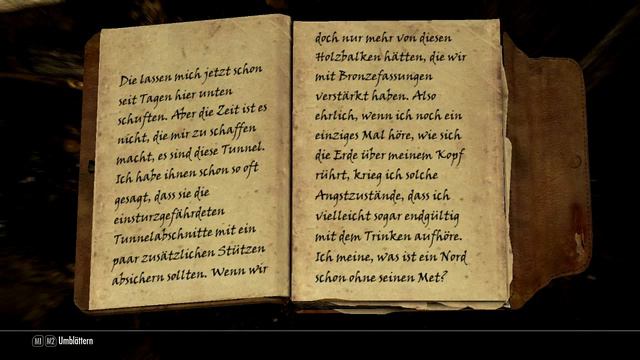 Die lassen mich jetzt schon
seit Tagen hier unten
schuften. Aber die Zeit ist es
nicht, die mir zu schaffen
macht, es sind diese Tunnel.
Ich habe ihnen schon so oft
gesagt, dass sie die
einsturzgefährdeten
Tunnelabschnitte mit ein
paar zusätzlichen Stützen
absichern sollten. Wenn wir
doch nur mehr von diesen
Holzbalken hätten, die wir
mit Bronzefassungen
verstärkt haben. Also
ehrlich, wenn ich noch ein
einziges Mal höre, wie sich
die Erde über meinem Kopf
rührt, krieg ich solche
Angstzustände, dass ich
vielleicht sogar endgültig
mit dem Trinken aufhöre.
Ich meine, was ist ein Nord
schon ohne seinen Met?
M1 M2 Umblättern